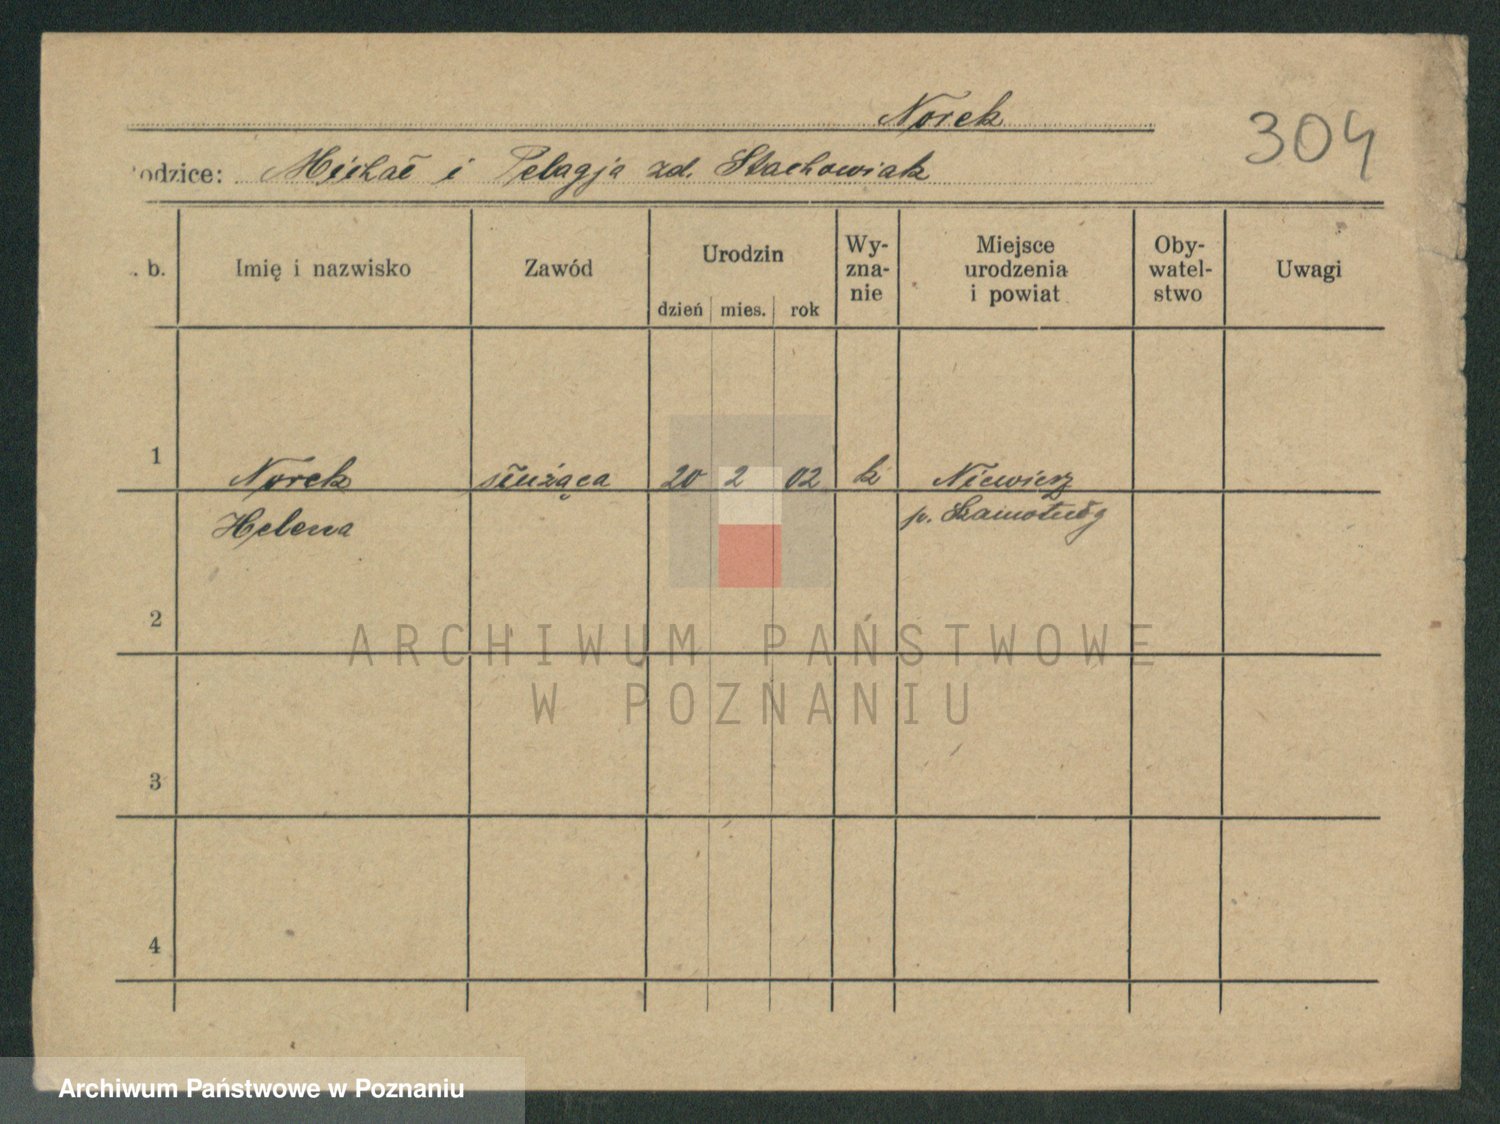 Norek
304
odzice: Michał i Pelagja zd. Stachowiak
. b.
Imię i nazwisko
Zawód
Urodzin
dzień mies. rok
Wy-
zna-
nie
Miejsce
urodzenia
i powiat
Oby-
watel-
stwo
Uwagi
1
Norek służąca 20 2 02 k Niewierz
Helena p. Szamotuły
2
3
4
ARCHIWUM PAŃSTWOWE
W POZNANIU
Archiwum Państwowe w Poznaniu